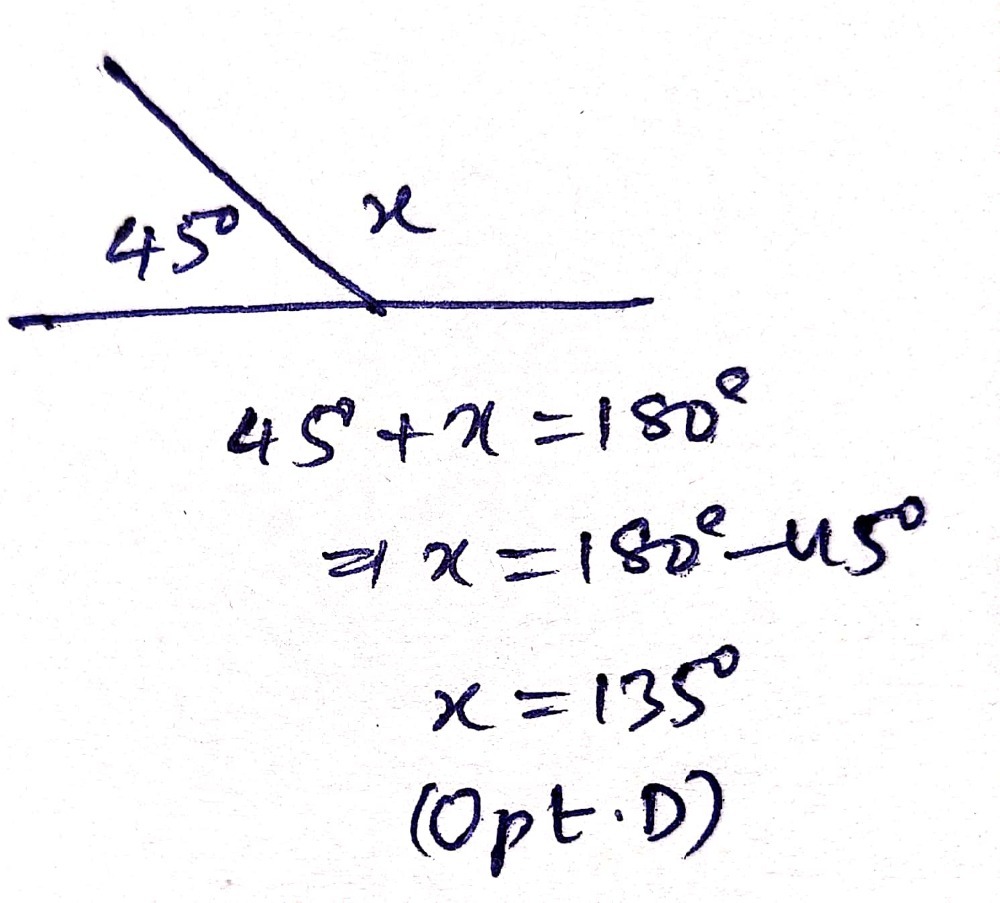 45° x
45° + x = 180°
⇒ x = 180° - 45°
x = 135°
(Opt. D)